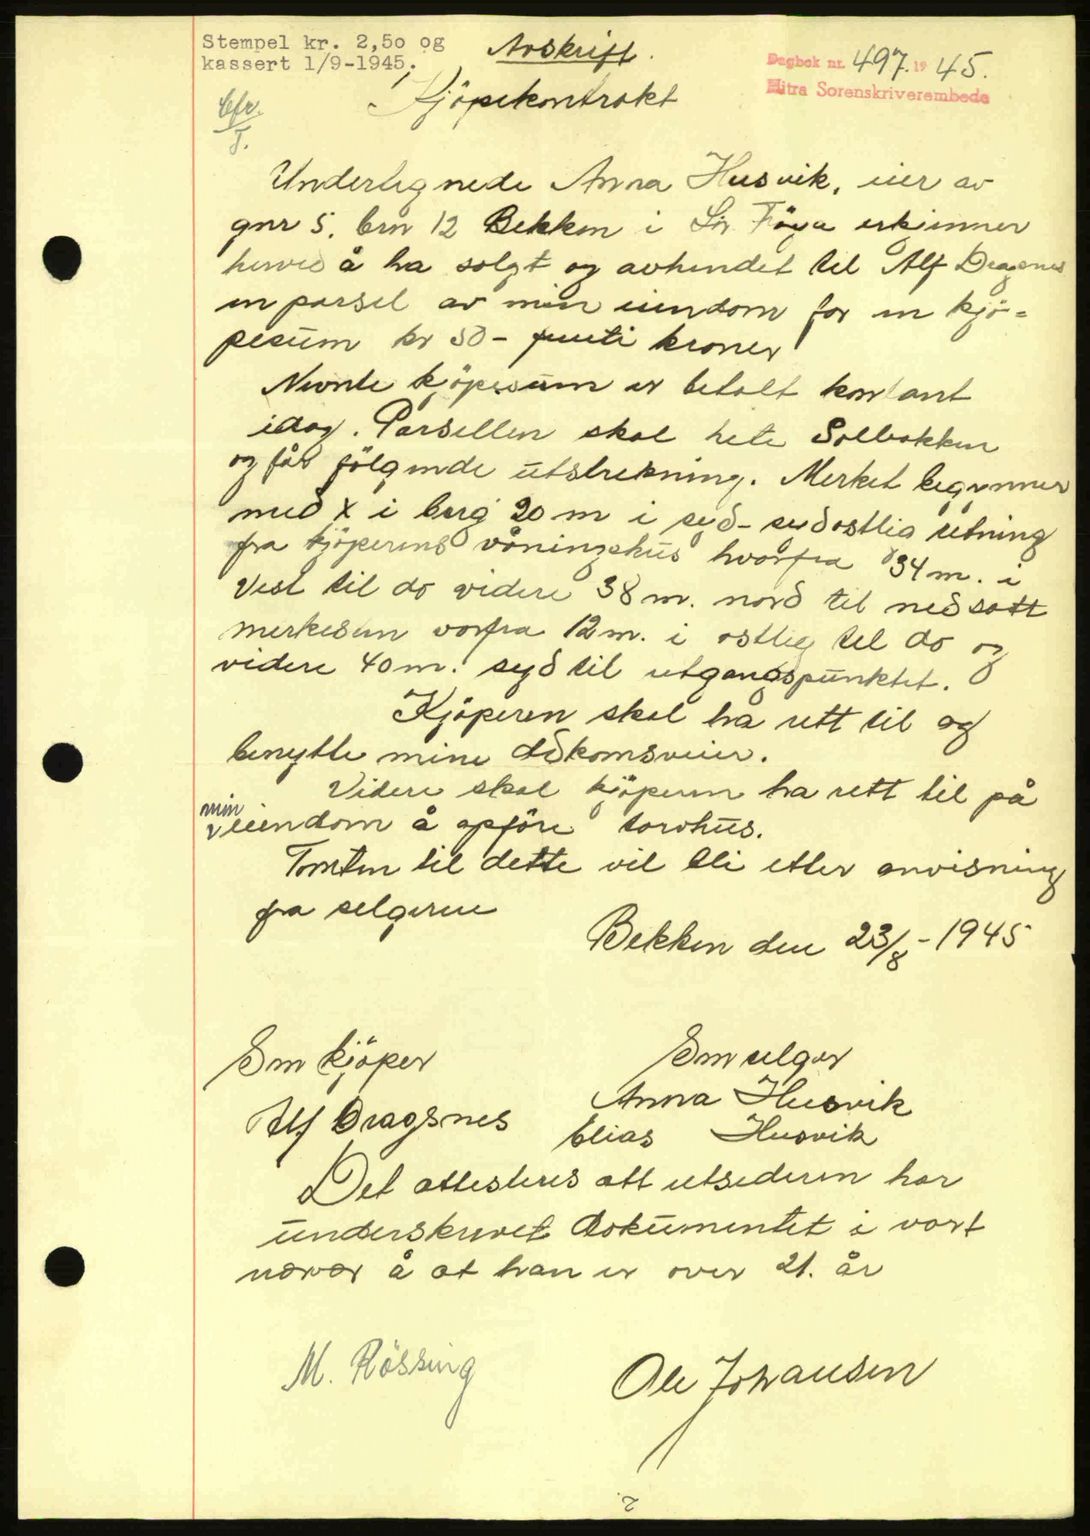 Stempel kr. 2,50 og
kassert 1/9-1945.
Avskrift.
Dagbok nr. 497. 19 45.
Hitra Sorenskriverembede
Kjöpekontrakt
Undertegnede Anna Husvik, eier av
gnr 5. brn 12 Bekken i Sör Föya erkjenner
herved å ha solgt og avhendet til Alf Dragsnes
en parsel av min eiendom for en kjö=
pesum kr 50 - femti kroner
Nevnte kjöpesum er betalt kontant
idag. Parsellen skal hete Solbakken
og får fölgende utstrekning. Merket begynner
med X i berg 20 m i syd- sydostlig retning
fra kjöperens våningshus hvorfra 34 m. i
Vest til do videre 38 m. nord til nedsatt
merkesten vorfra 12 m. i ostlig til do og
videre 40 m. syd til utgangspunktet.
Kjöperen skal ha rett til og
benytte mine adkomsveier.
Videre skal kjöperen ha rett til på
min
v eiendom å opföre torvhus.
Tomten til dette vil bli etter anvisning
fra selgeren
Bekken den 23/8 - 1945
Som kjöper
Som selger
Alf Dragsnes
Anna Husvik
Elias Husvik
Det attesteres att utsederen har
underskrevet dokumentet i vort
nærvær å at han er over 21. år
M. Rössing
Ole Johansen